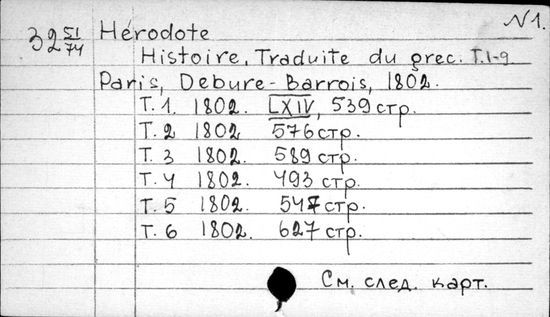 N1.
32 51/74 Hérodote
Histoire. Traduite du grec. T.1-9
Paris, Debure-Barrois, 1802.
T. 1. 1802. LXIV, 539 стр.
T. 2 1802 576 стр.
T. 3 1802. 589 стр.
T. 4 1802. 493 стр.
T. 5 1802. 547 стр.
T. 6 1802. 627 стр.
См. след. карт.